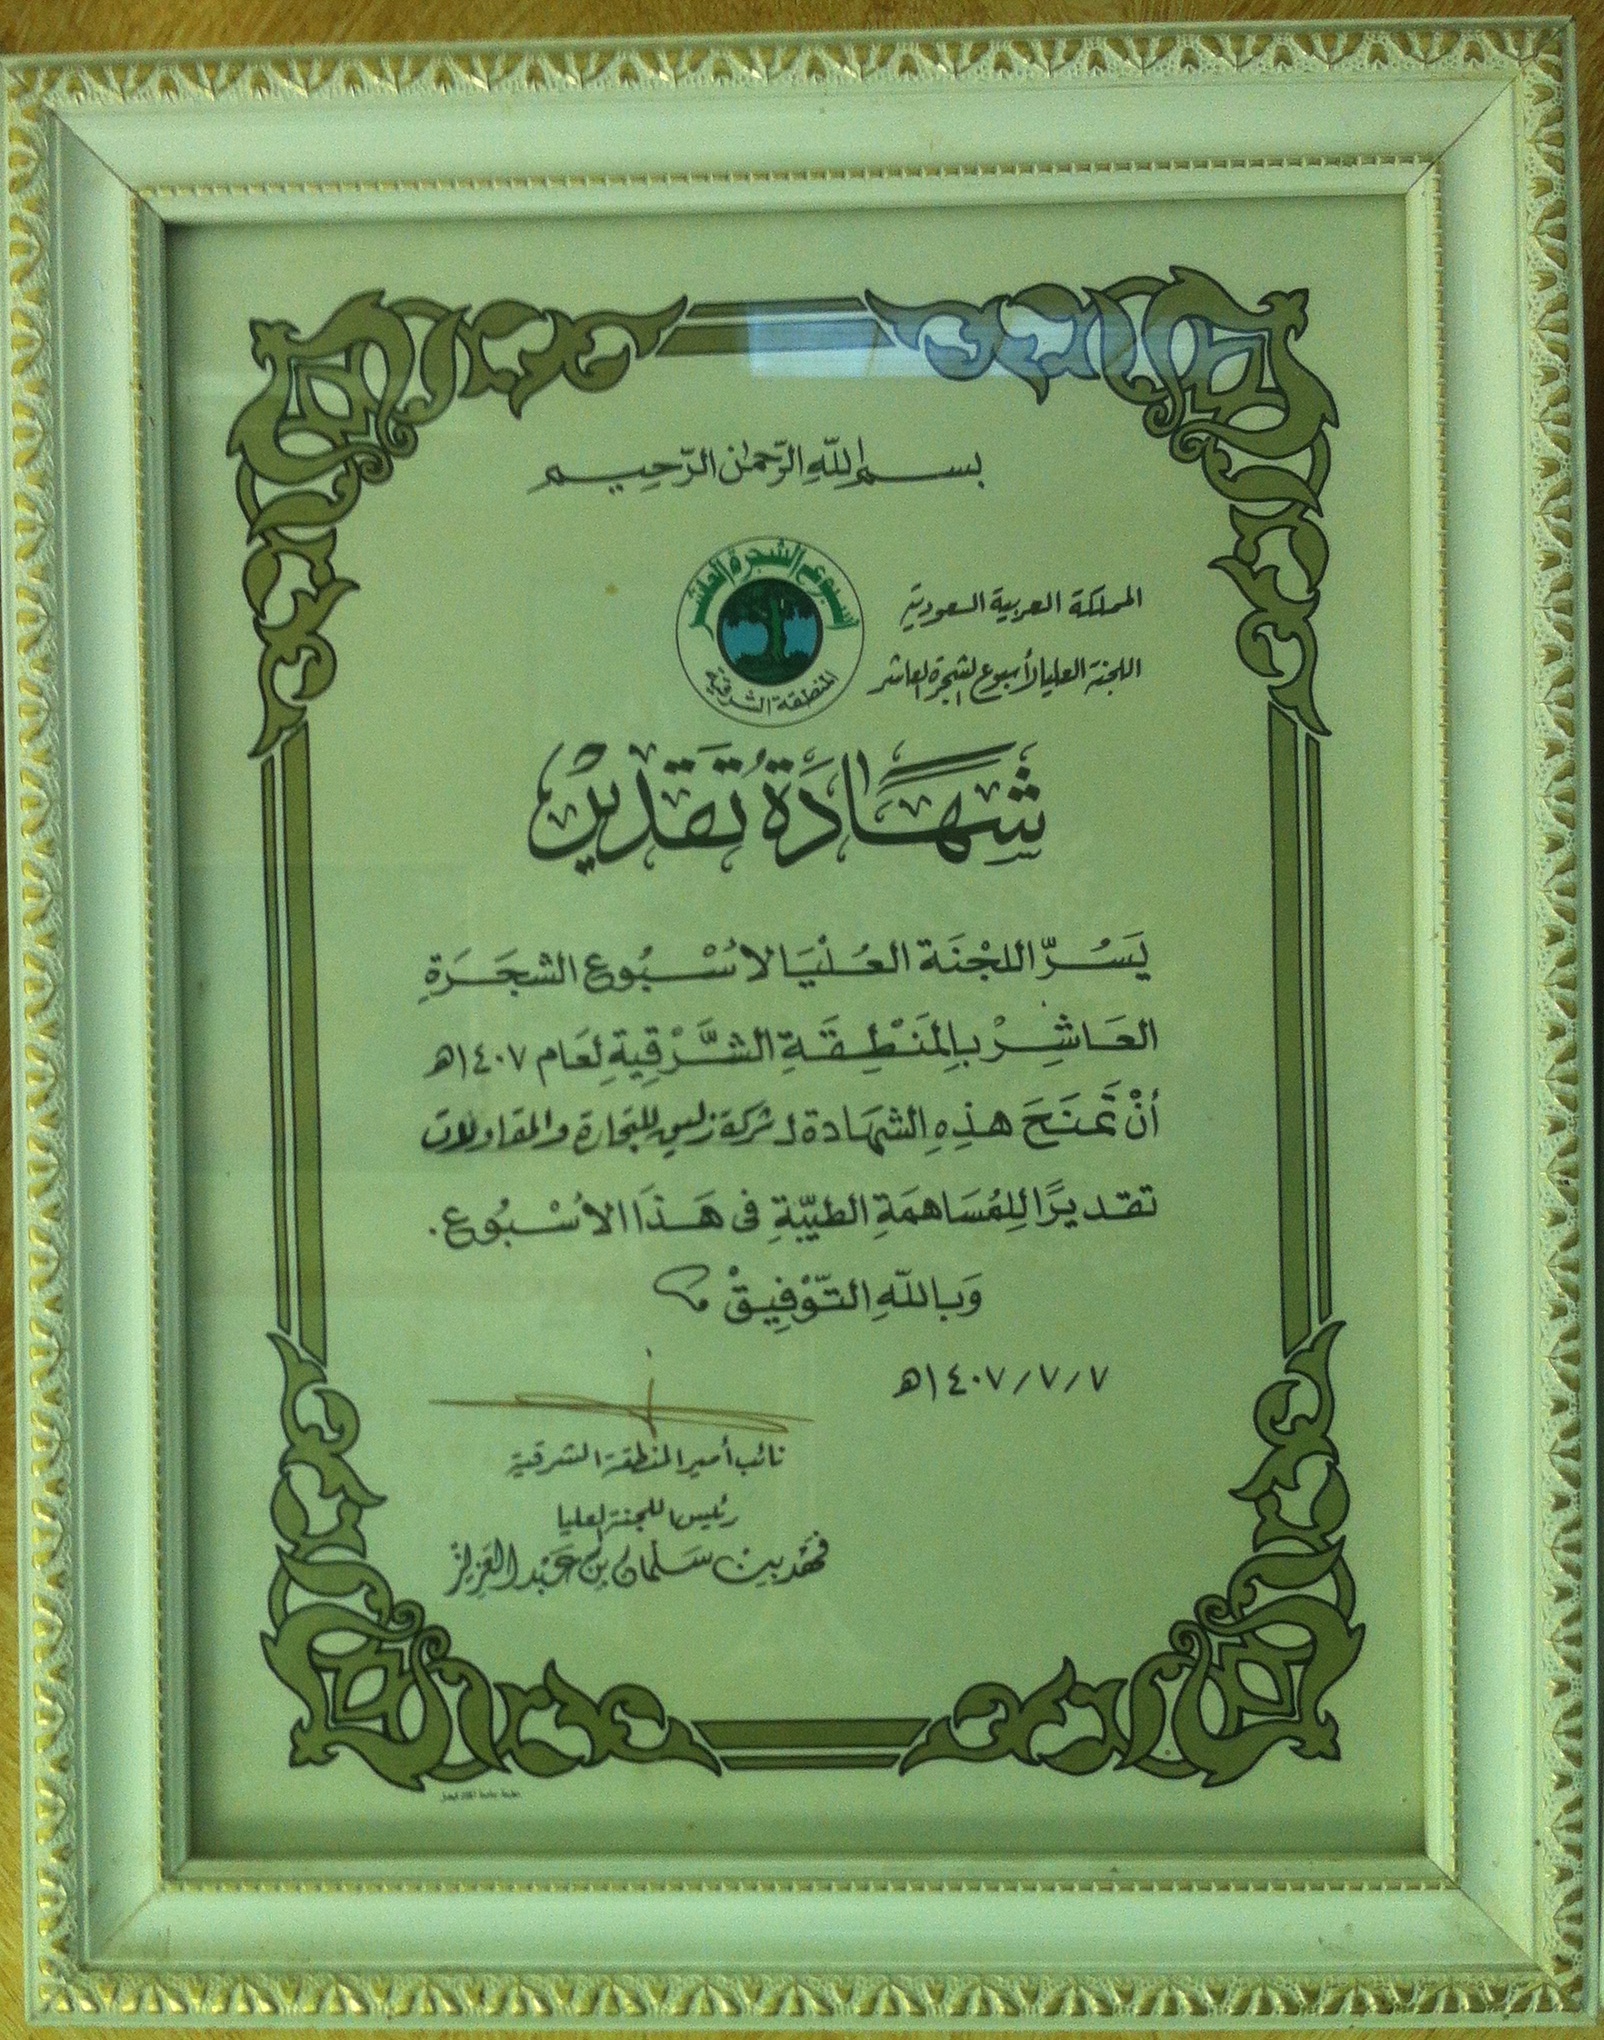 بسم الله الرحمن الرحيم
المملكة العربية السعودية
اللجنة العليا لأسبوع الشجرة العاشر
أسبوع الشجرة العاشر
المنطقة الشرقية
شَهَادَةُ تَقدير
يَسُرّ اللجْنَة العُلْيَا لاُسْبُوع الشجَرَةِ
العَاشِرْ بِالمَنْطِقَةِ الشَّرْقِيةِ لعَام ١٤٠٧هـ
أنْ تَمنَحَ هذِهِ الشهَادة لـ شركة زليس للتجارة والمقاولات
تقديرًا لِلمُسَاهمَةِ الطيّبَةِ فى هَذَا الاُسْبُوع.
وَبِاللهِ التّوْفِيقْ
١٤٠٧/٧/٧هـ
نائب أمير المنطقة الشرقية
رئيس اللجنة العليا
فهْد بن سَلمان بن عَبْد العَزيز